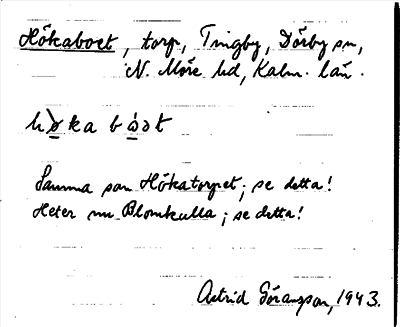 Hökaboet, torp, Tingby, Dörby sn,
N. Möre hd, Kalm. län.
hø̀ka bó̀ət
Samma som Hökatorpet; se detta!
Heter nu Blomkulla; se detta!
Astrid Göransson, 1943.